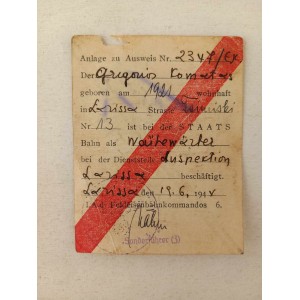 Anlage zu Ausweis Nr. 2347/Ex
Der Grigorios Komatas
geboren am 1921 wohnhaft
in Larissa Strasse
Nr 13 ist bei der STAATS
Bahn als
bei der Dienststelle Inspektion
Larissa beschäftigt.
Larissa den 19.6. 194
I.A.d. Feldeisenbahnkommandos 6.
Sonderführer